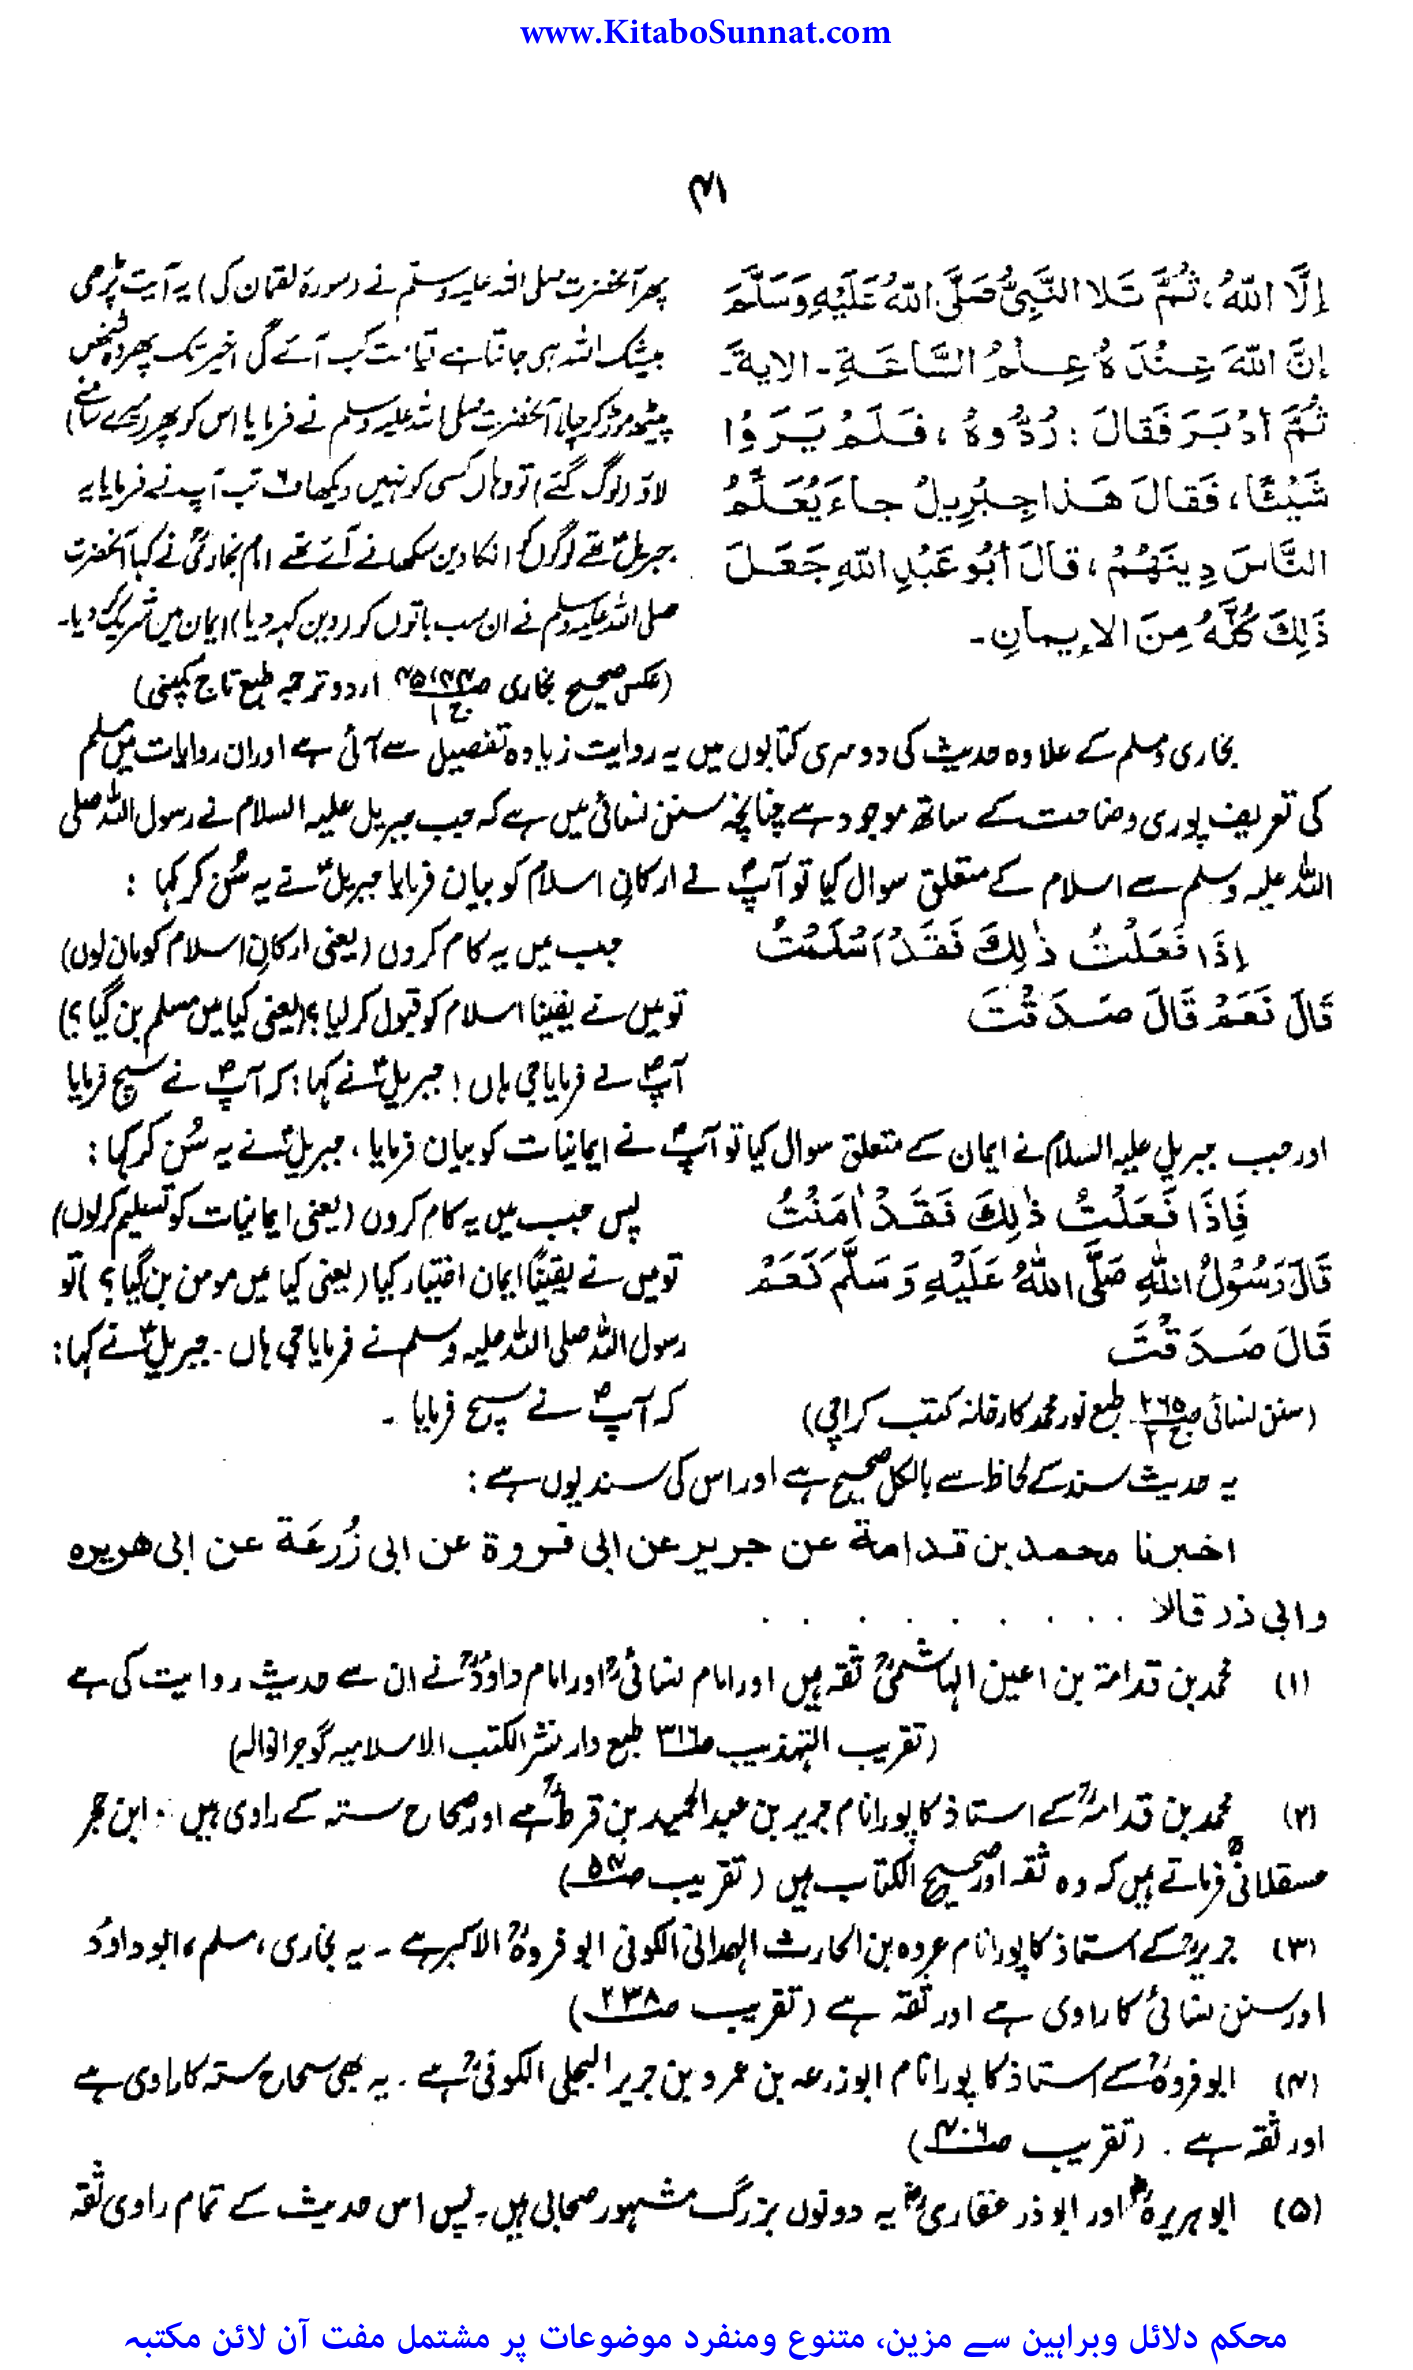 www.KitaboSunnat.com
۴۱
إِلَّا اللّٰهُ، ثُمَّ تَلا النَّبِيُّ صَلَّى اللّٰهُ عَلَيْهِ وَسَلَّمَ
إِنَّ اللّٰهَ عِنْدَهُ عِلْمُ السَّاعَةِ۔ الایة۔
ثُمَّ أَدْبَرَ فَقَالَ : رُدُّوهُ ، فَلَمْ يَرَوْا
شَيْئًا، فَقَالَ هَذا جِبْرِيلُ جاءَ يُعَلِّمُ
النَّاسَ دِينَهُمْ، قالَ أَبُو عَبْدِ اللّٰهِ جَعَلَ
ذَلِكَ كُلَّهُ مِنَ الإيمانِ۔
پھر آنحضرت صلی اللہ علیہ وسلم نے (سورۃ لقمان کی) یہ آیت پڑھی
بیشک اللہ ہی جانتا ہے قیامت کب آئے گی اخیر تک پھر وہ شخص
پیٹھ موڑ کر چلا آنحضرت صلی اللہ علیہ وسلم نے فرمایا اس کو پھر (میرے سامنے)
لاؤ (لوگ گئے) تو وہاں کسی کو نہیں دیکھا ف۶ تب آپ نے فرمایا یہ
جبریلؑ تھے لوگوں کو انکا دین سکھانے آئے تھے امام بخاریؒ نے کہا آنحضرت
صلی اللہ علیہ وسلم نے ان سب باتوں کو (دین کہہ دیا) ایمان میں شریک کر دیا۔
(عکس صحیح بخاری ص۴۵،۴۴ ج۱ اردو ترجمہ طبع تاج کمپنی)
بخاری و مسلم کے علاوہ حدیث کی دوسری کتابوں میں یہ روایت زیادہ تفصیل سے آئی ہے اور ان روایات میں مسلم
کی تعریف پوری وضاحت کے ساتھ موجود ہے چنانچہ سنن نسائی میں ہے کہ جب جبریل علیہ السلام نے رسول اللہ صلی
اللہ علیہ وسلم سے اسلام کے متعلق سوال کیا تو آپؐ نے ارکانِ اسلام کو بیان فرمایا جبریلؑ نے یہ سُن کر کہا :
إِذَا فَعَلْتُ ذٰلِكَ فَقَدْ اَسْلَمْتُ
قَالَ نَعَمْ قَالَ صَدَقْتَ
جب میں یہ کام کروں (یعنی ارکانِ اسلام کو مان لوں)
تو میں نے یقینًا اسلام کو قبول کر لیا؟ (یعنی کیا میں مسلم بن گیا؟)
آپؐ نے فرمایا جی ہاں! جبریلؑ نے کہا: کہ آپؐ نے سچ فرمایا
اور جب جبریل علیہ السلام نے ایمان کے متعلق سوال کیا تو آپؐ نے ایمانیات کو بیان فرمایا، جبریلؑ نے یہ سُن کر کہا :
فَإِذَا فَعَلْتُ ذٰلِكَ فَقَدْ اٰمَنْتُ
قَالَ رَسُوْلُ اللّٰهِ صَلَّى اللّٰهُ عَلَيْهِ وَسَلَّمَ نَعَمْ
قَالَ صَدَقْتَ
(سنن نسائی ص۲۶۵ ج۲ طبع نور محمد کارخانہ کتب کراچی)
پس جب میں یہ کام کروں (یعنی ایمانیات کو تسلیم کر لوں)
تو میں نے یقینًا ایمان اختیار کیا (یعنی کیا میں مومن بن گیا؟) تو
رسول اللہ صلی اللہ علیہ وسلم نے فرمایا جی ہاں۔ جبریلؑ نے کہا:
کہ آپؐ نے سچ فرمایا ۔
یہ حدیث سند کے لحاظ سے بالکل صحیح ہے اور اس کی سند یوں ہے :
اخبرنا محمد بن قدامة عن جریر عن ابی فروة عن ابی زُرعَة عن ابی ھریرہ
وابی ذر قالا . . . . . . . . . .
(۱) محمد بن قدامۃ بن اعین الہاشمیؒ ثقہ ہیں اور امام نسائیؒ اور امام داؤدؒ نے ان سے حدیث روایت کی ہے
(تقریب التہذیب ص۳۱۶ طبع دار نشر الکتب الاسلامیہ گوجرانوالہ)
(۲) محمد بن قدامہؒ کے استاذ کا پورا نام جریر بن عبدالحمید بن قرطؒ ہے اور صحاح ستہ کے راوی ہیں ۔ ابن حجر
عسقلانیؒ فرماتے ہیں کہ وہ ثقہ اور صحیح الکتاب ہیں (تقریب ص۵۴)
(۳) جریرؒ کے استاذ کا پورا نام عروہ بن الحارث الہمدانی الکوفی ابو فروہؒ الاکبر ہے ۔ یہ بخاری، مسلم، ابوداود
اور سنن نسائی کا راوی ہے اور ثقہ ہے (تقریب ص۲۳۸)
(۴) ابوفروہؒ کے استاذ کا پورا نام ابوزرعہ بن عمرو بن جریر البجلی الکوفیؒ ہے ۔ یہ بھی صحاح ستہ کا راوی ہے
اور ثقہ ہے ۔ (تقریب ص۴۰۶)
(۵) ابوہریرہؓ اور ابوذر غفاریؓ یہ دونوں بزرگ مشہور صحابی ہیں۔ پس اس حدیث کے تمام راوی ثقہ
محکم دلائل وبراہین سے مزین، متنوع ومنفرد موضوعات پر مشتمل مفت آن لائن مکتبہ